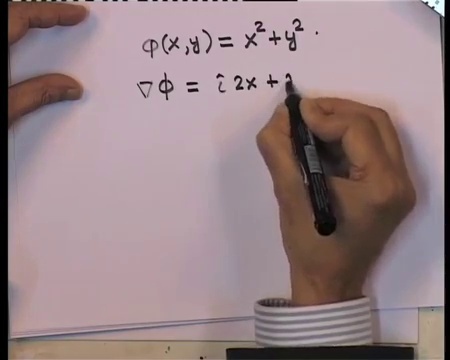 φ(x,y) = x² + y².
∇φ = î 2x +